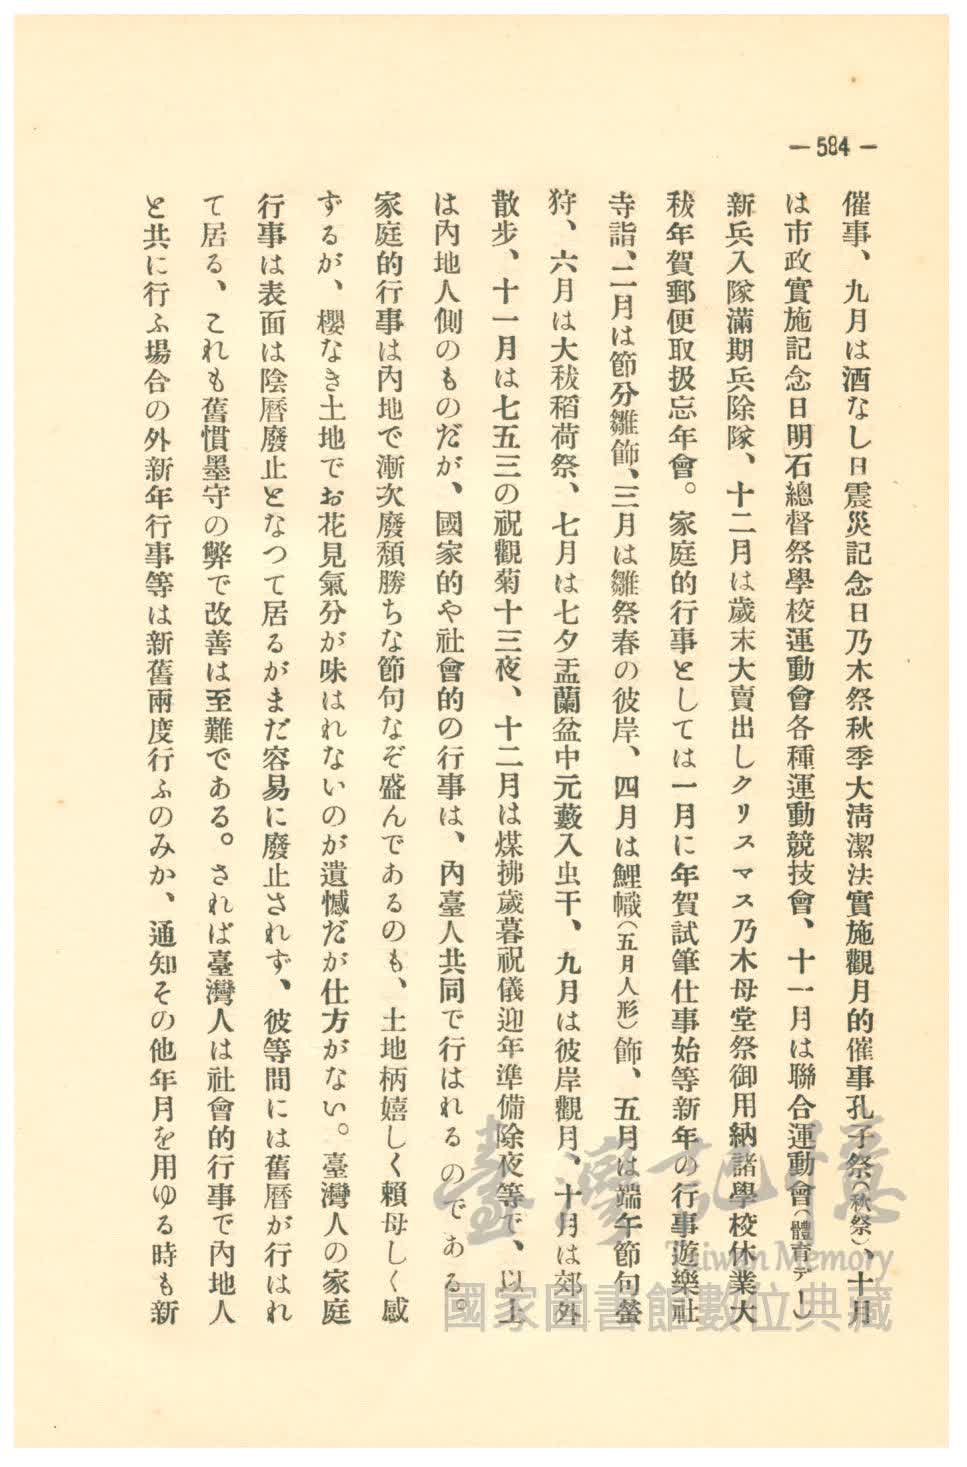 — 584 —
催事、九月は酒なし日震災記念日乃木祭秋季大淸潔法實施觀月的催事孔子祭（秋祭）、十月
は市政實施記念日明石總督祭學校運動會各種運動競技會、十一月は聯合運動會（體育デー）
新兵入隊滿期兵除隊、十二月は歲末大賣出しクリスマス乃木母堂祭御用納諸學校休業大
秡年賀郵便取扱忘年會。家庭的行事としては一月に年賀試筆仕事始等新年の行事遊樂社
寺詣、二月は節分雛飾、三月は雛祭春の彼岸、四月は鯉幟（五月人形）飾、五月は端午節句螢
狩、六月は大秡稻荷祭、七月は七夕盂蘭盆中元藪入虫干、九月は彼岸觀月、十月は郊外
散步、十一月は七五三の祝觀菊十三夜、十二月は煤拂歲暮祝儀迎年準備除夜等で、以上
は內地人側のものだが、國家的や社會的の行事は、內臺人共同で行はれるのである。
家庭的行事は內地で漸次廢頽勝ちな節句なぞ盛んであるのも、土地柄嬉しく賴母しく感
ずるが、櫻なき土地でお花見氣分が味はれないのが遺憾だが仕方がない。臺灣人の家庭
行事は表面は陰曆廢止となつて居るがまだ容易に廢止されず、彼等間には舊曆が行はれ
て居る、これも舊慣墨守の弊で改善は至難である。されば臺灣人は社會的行事で內地人
と共に行ふ場合の外新年行事等は新舊兩度行ふのみか、通知その他年月を用ゆる時も新
臺灣記憶
Taiwan Memory
國家圖書館數位典藏